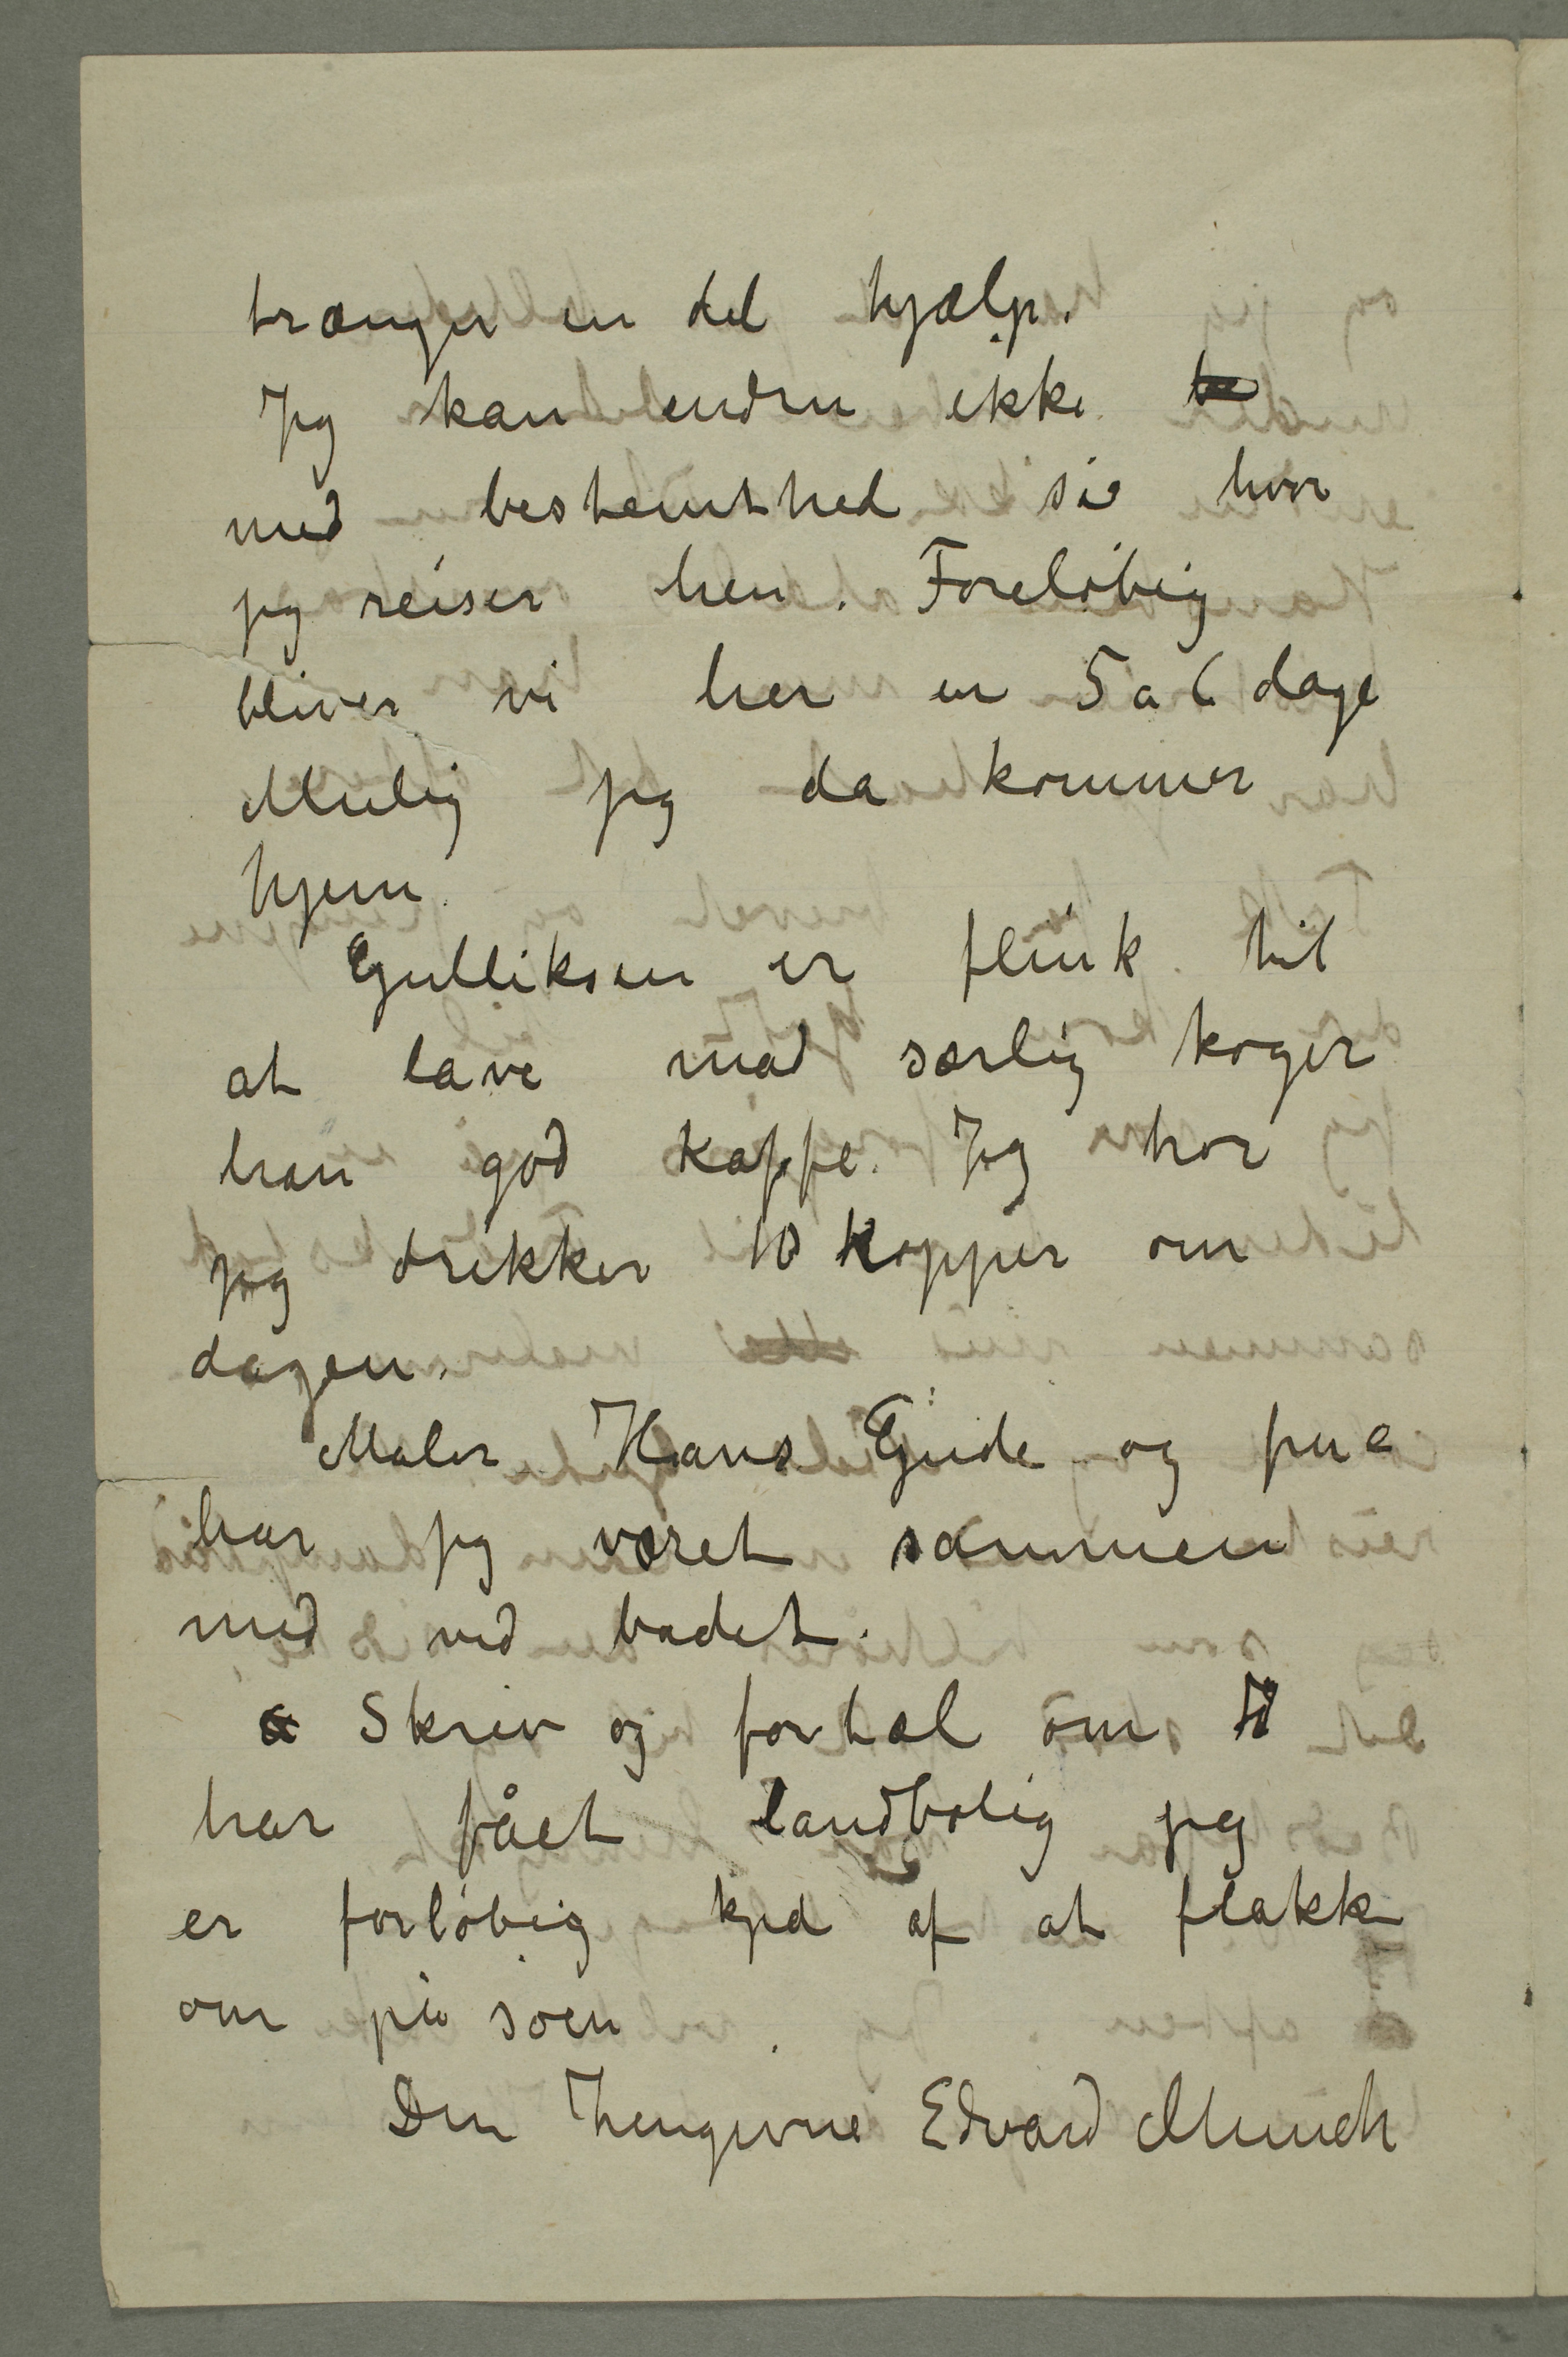 trænger en del hjælp.
Jeg kan endnu ikke
med bestemthed sie hvor
jeg reiser hen. Foreløbig
bliver vi her en 5 a 6 dage
Mulig jeg da kommer
hjem.
Gulliksen er flink til
at lave mad særlig koger
han god kaffe. Jeg tror
jeg drikker 10 kopper om
dagen.
Maler Hans Gude og frue
har jeg været sammen
med ved badet.
Skriv og fortæl om I
har fået landbolig jeg
er forløbig kjed af at flakke
om på søen
Din hengivne Edvard Munch